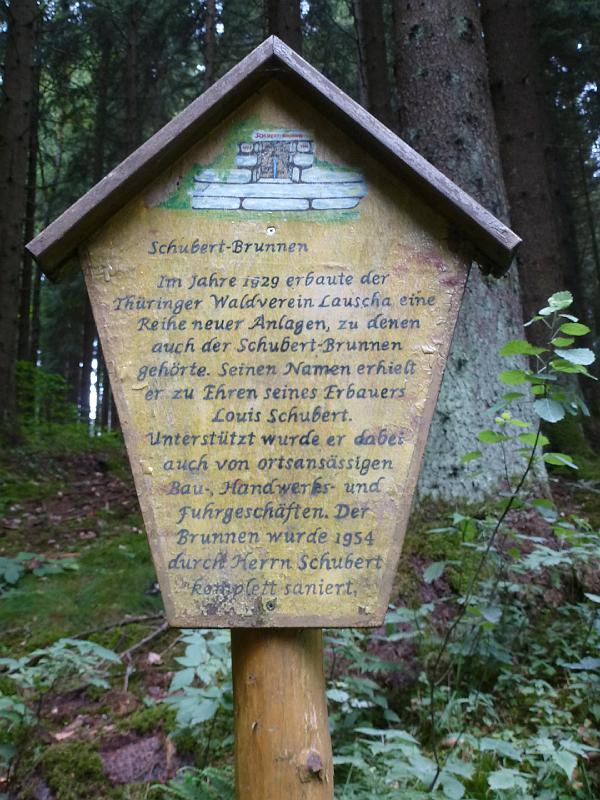 Schubert-Brunnen
Im Jahre 1929 erbaute der
Thüringer Waldverein Lauscha eine
Reihe neuer Anlagen, zu denen
auch der Schubert-Brunnen
gehörte. Seinen Namen erhielt
er zu Ehren seines Erbauers
Louis Schubert.
Unterstützt wurde er dabei
auch von ortsansässigen
Bau-, Handwerks- und
Fuhrgeschäften. Der
Brunnen wurde 1954
durch Herrn Schubert
komplett saniert.